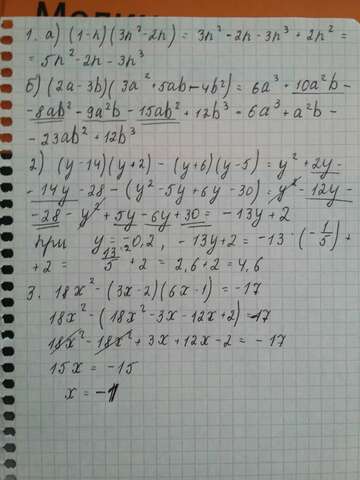 1. а) (1-n)(3n²-2n) = 3n²-2n-3n³+2n² =
= 5n²-2n-3n³
б) (2a-3b)(3a²+5ab-4b²) = 6a³+10a²b-
-8ab²-9a²b-15ab²+12b³ = 6a³+a²b-
-23ab²+12b³
2) (y-14)(y+2) - (y+6)(y-5) = y²+2y-
-14y-28-(y²-5y+6y-30) = y²-12y-
-28-y²+5y-6y+30 = -13y+2
при y=-0,2, -13y+2 = -13·(-1/5)+
+2 = 13/5+2 = 2,6+2 = 4,6
3. 18x²-(3x-2)(6x-1) = -17
18x²-(18x²-3x-12x+2) = -17
18x²-18x²+3x+12x-2 = -17
15x = -15
x = -1